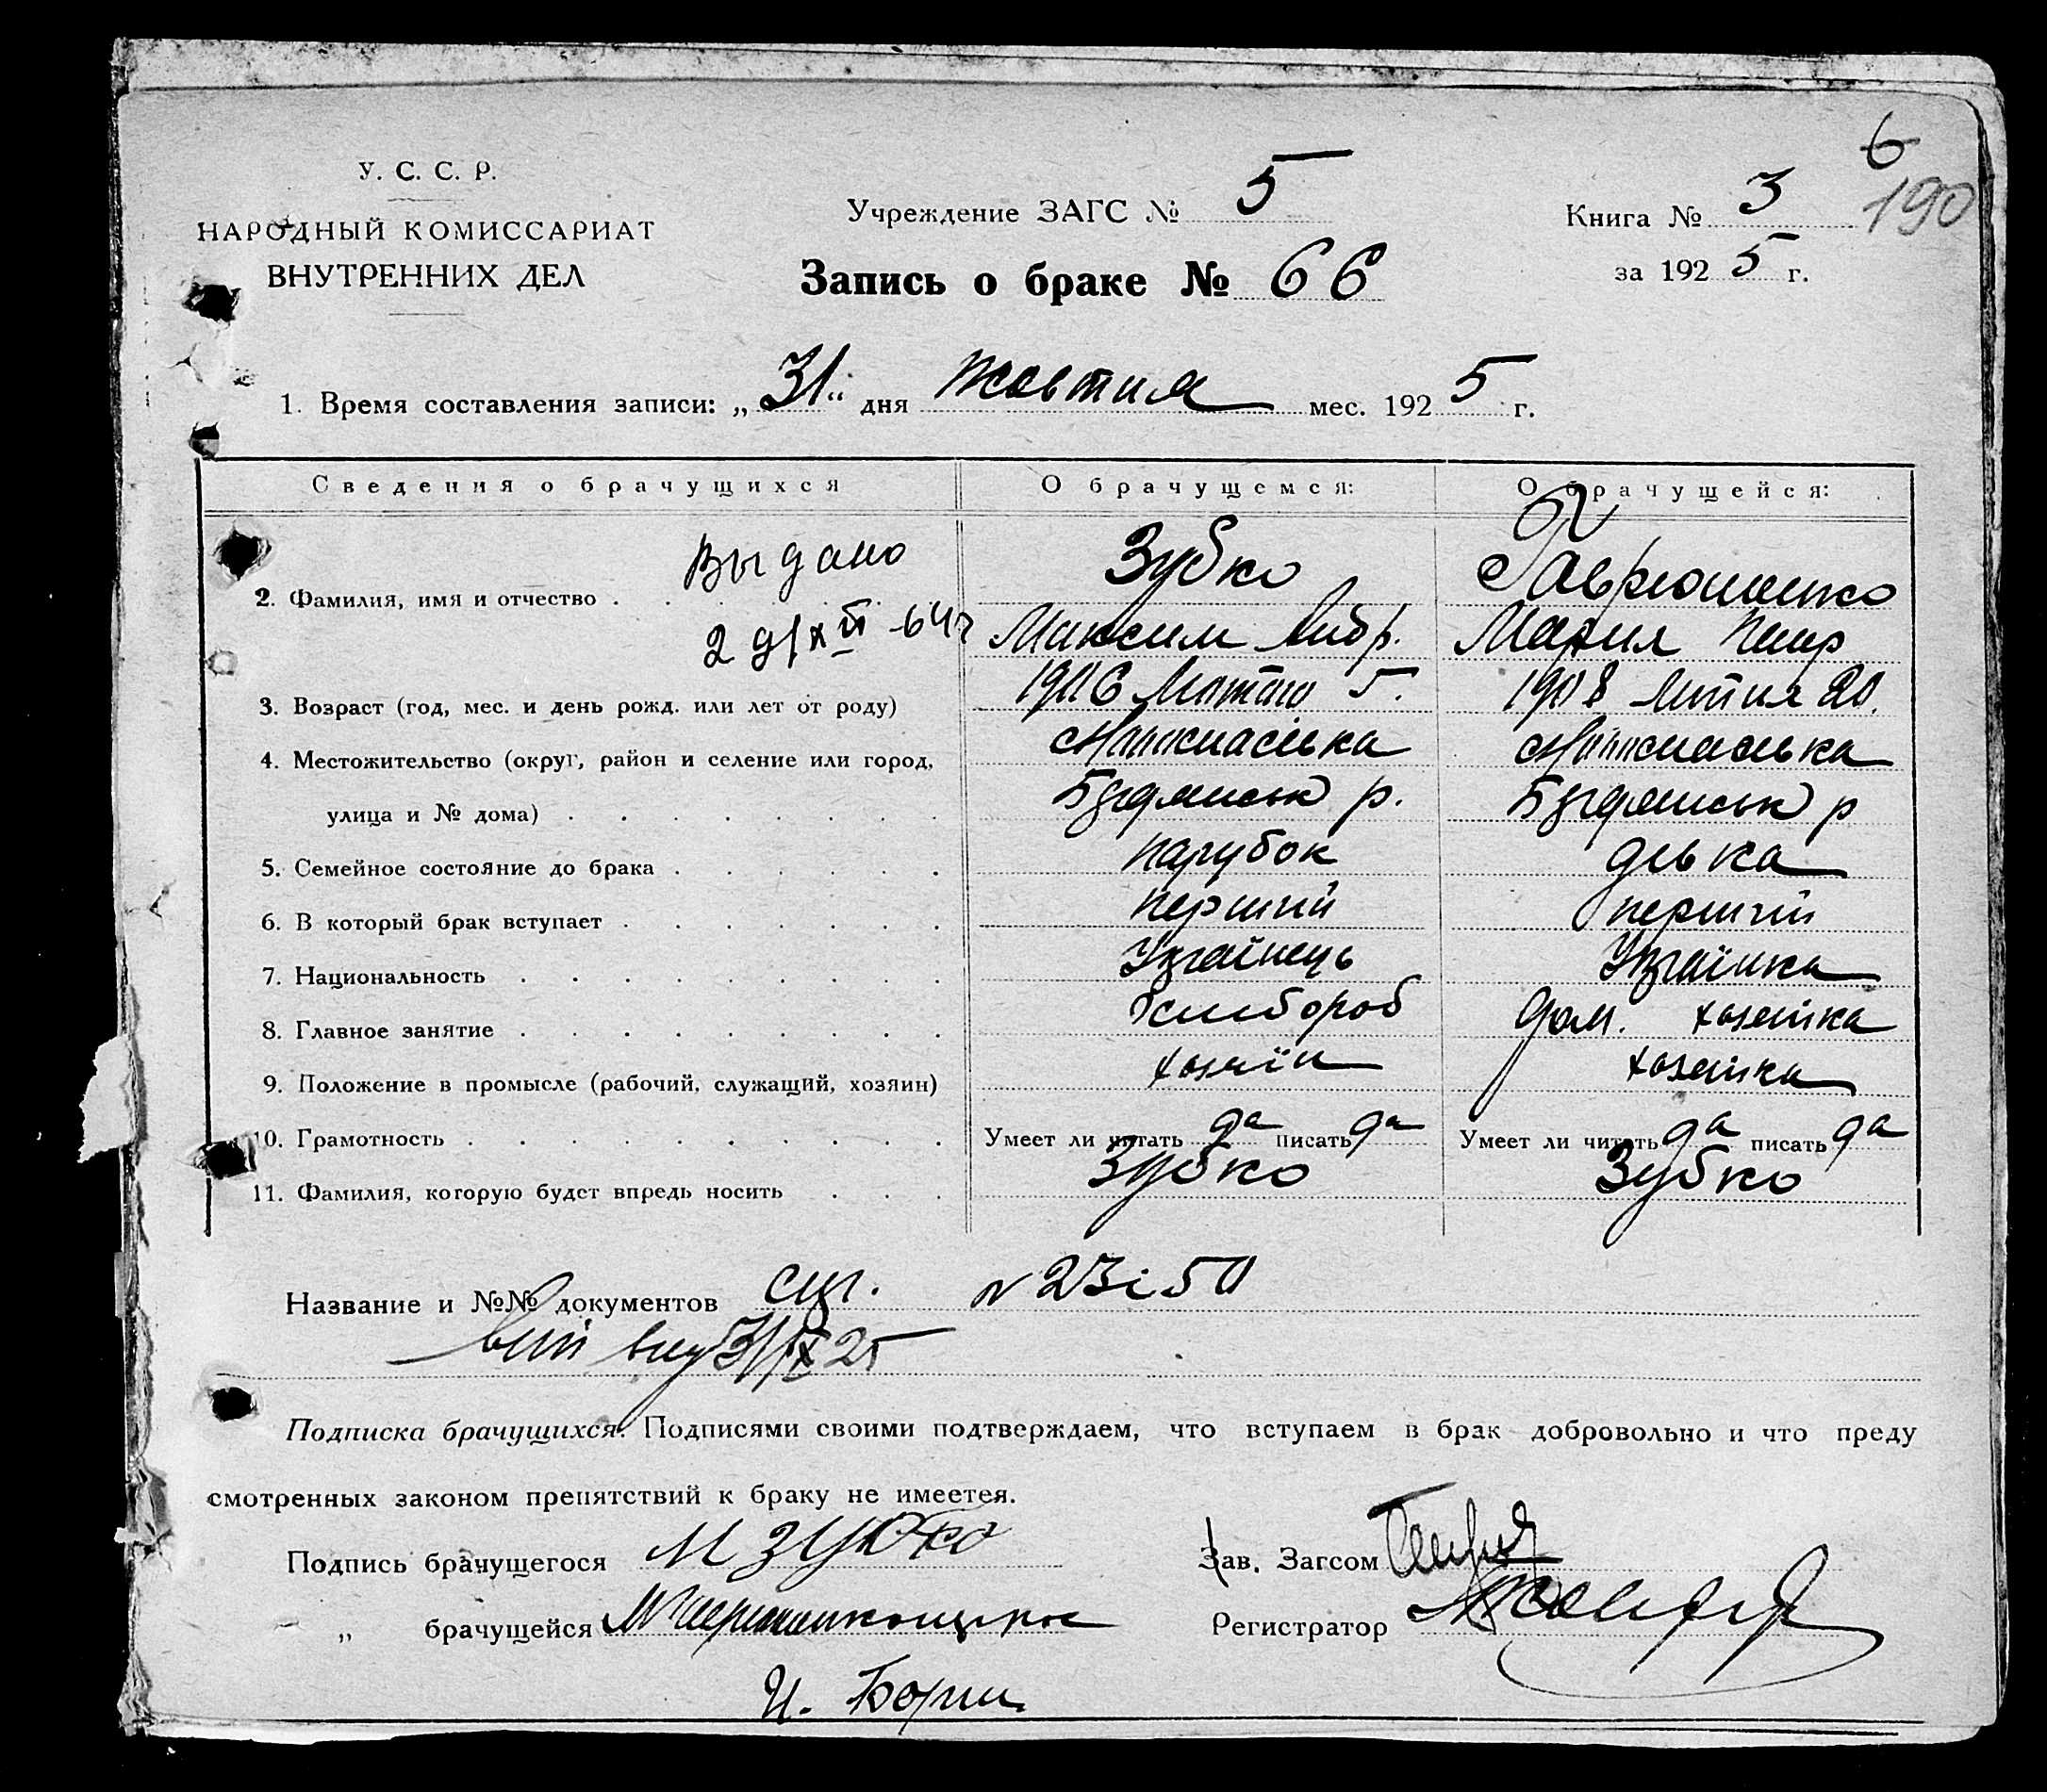 6
190
У. С. С. Р.
НАРОДНЫЙ КОМИССАРИАТ
ВНУТРЕННИХ ДЕЛ
Учреждение ЗАГС № 5
Книга № 3
за 1925 г.
Запись о браке № 66
1. Время составления записи: „31" дня жовтня мес. 1925 г.
Сведения о брачущихся О брачущемся: О брачущейся:
Выдано
2. Фамилия, имя и отчество Зубко
Максим Андр. Мария Петр
3. Возраст (год, мес. и день рожд. или лет от роду) 1906 Лютого 5. 1908 20.
4. Местожительство (округ, район и селение или город,
улица и № дома) р. р
5. Семейное состояние до брака парубок дівка
6. В который брак вступает перший перший
7. Национальность Українець Українка
8. Главное занятие хлібороб дом. хозяйка
9. Положение в промысле (рабочий, служащий, хозяин) хозяїн хозяйка
10. Грамотность Умеет ли читать да писать да Умеет ли читать да писать да
11. Фамилия, которую будет впредь носить Зубко Зубко
Название и №№ документов N 23 і 50
31/X 25
Подписка брачущихся. Подписями своими подтверждаем, что вступаем в брак добровольно и что преду
смотренных законом препятствий к браку не имеется.
Подпись брачущегося М Зубко
Зав. Загсом
„ брачущейся
Регистратор